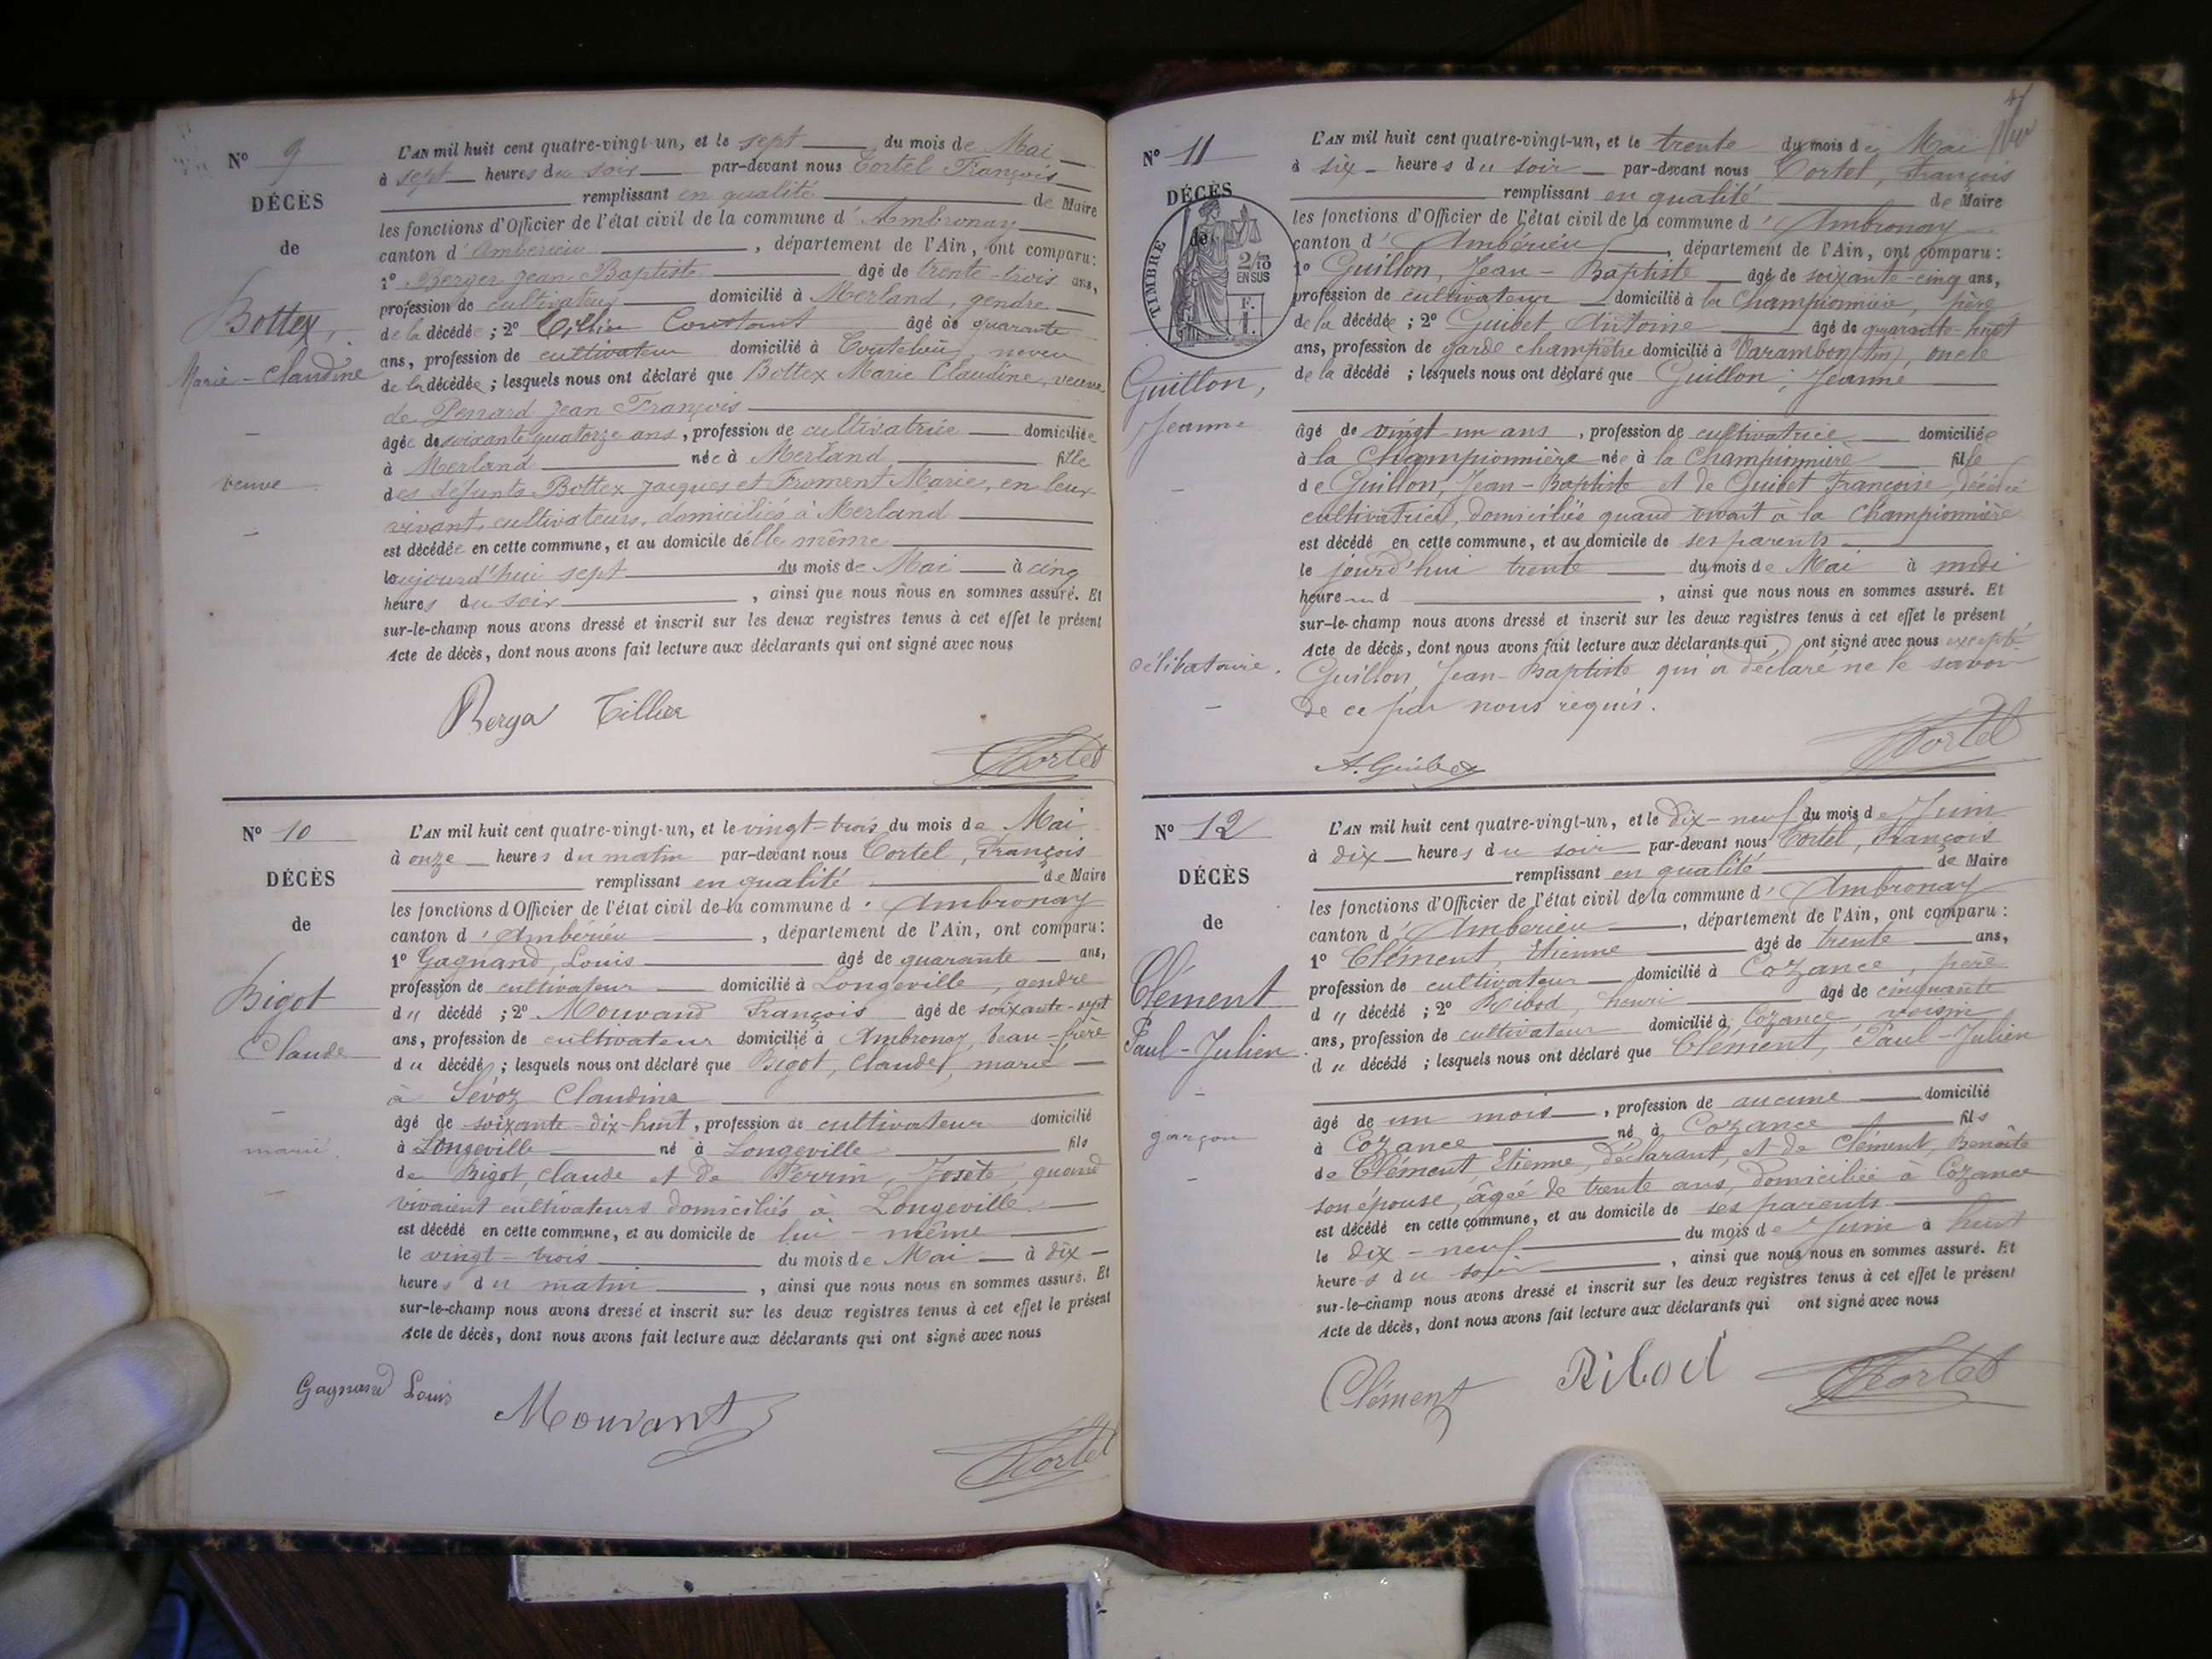 N° 9
DÉCÈS
de
Bottex,
Marie-Claudine
veuve
L'AN mil huit cent quatre-vingt-un, et le sept du mois de Mai
à sept heures du soir par-devant nous Tortel François
remplissant en qualité de Maire
les fonctions d'Officier de l'état civil de la commune d'Ambronay
canton d'Ambérieu, département de l'Ain, ont comparu:
1° Berger Jean-Baptiste âgé de trente-trois ans,
profession de cultivateur domicilié à Merland, gendre
de la décédée; 2° Tillier Constant âgé de quarante
ans, profession de cultivateur domicilié à neveu
de la décédée; lesquels nous ont déclaré que Bottex Marie Claudine, veuve
de Penard Jean François
âgée de soixante quatorze ans, profession de cultivatrice domiciliée
à Merland née à Merland fille
des défunts Bottex Jacques et Froment Marie, en leur
vivant cultivateurs, domiciliés à Merland
est décédée en cette commune, et au domicile d'elle même
aujourd'hui sept du mois de Mai à cinq
heures du soir, ainsi que nous nous en sommes assuré. Et
sur-le-champ nous avons dressé et inscrit sur les deux registres tenus à cet effet le présent
Acte de décès, dont nous avons fait lecture aux déclarants qui ont signé avec nous
Berger Tillier
Tortel
N° 10
DÉCÈS
de
Bigot
Claude
marié
L'AN mil huit cent quatre-vingt-un, et le vingt-trois du mois de Mai
à onze heures du matin par-devant nous Tortel, François
remplissant en qualité de Maire
les fonctions d'Officier de l'état civil de la commune d'Ambronay
canton d'Ambérieu, département de l'Ain, ont comparu:
1° Gagnand, Louis âgé de quarante ans,
profession de cultivateur domicilié à Longeville, gendre
du décédé; 2° Mouvand François âgé de soixante-sept
ans, profession de cultivateur domicilié à Ambronay, beau-frère
du décédé; lesquels nous ont déclaré que Bigot, Claude, marié
à Sévoz Claudine
âgé de soixante-dix-huit, profession de cultivateur domicilié
à Longeville né à Longeville fils
de Bigot, Claude et de Perrin, Josète, quand
vivaient cultivateurs domiciliés à Longeville
est décédé en cette commune, et au domicile de lui-même
le vingt-trois du mois de Mai à dix
heures du matin, ainsi que nous nous en sommes assuré. Et
sur-le-champ nous avons dressé et inscrit sur les deux registres tenus à cet effet le présent
Acte de décès, dont nous avons fait lecture aux déclarants qui ont signé avec nous
Gagnand Louis
Mouvant
Tortel
N° 11
DÉCÈS
de
TIMBRE
2/10
EN SUS
Guillon,
Jeanne
célibataire.
L'AN mil huit cent quatre-vingt-un, et le trente du mois de Mai
à six heures du soir par-devant nous Tortel, François
remplissant en qualité de Maire
les fonctions d'Officier de l'état civil de la commune d'Ambronay
canton d'Ambérieu, département de l'Ain, ont comparu:
1° Guillon, Jean-Baptiste âgé de soixante-cinq ans,
profession de cultivateur domicilié à la Championnière, père
de la décédée; 2° Guibet, Antoine âgé de quarante-huit
ans, profession de garde champêtre domicilié à Varambon (Ain), oncle
de la décédé; lesquels nous ont déclaré que Guillon, Jeanne
âgé de vingt-un ans, profession de cultivatrice domiciliée
à la Championnière née à la Championnière fille
de Guillon, Jean-Baptiste et de Guibet Françoise, décédée
cultivatrice, domiciliée quand vivait à la Championnière
est décédé en cette commune, et au domicile de ses parents
le jourd'hui trente du mois de Mai à midi
heure d, ainsi que nous nous en sommes assuré. Et
sur-le-champ nous avons dressé et inscrit sur les deux registres tenus à cet effet le présent
Acte de décès, dont nous avons fait lecture aux déclarants qui ont signé avec nous excepté
Guillon, Jean-Baptiste qui a déclaré ne le savoir
de ce par nous requis.
A. Guibet
Tortel
N° 12
DÉCÈS
de
Clément
Paul-Julien
garçon
L'AN mil huit cent quatre-vingt-un, et le dix-neuf du mois de Juin
à dix heures du soir par-devant nous Tortel, François
remplissant en qualité de Maire
les fonctions d'Officier de l'état civil de la commune d'Ambronay
canton d'Ambérieu, département de l'Ain, ont comparu:
1° Clément, Etienne âgé de trente ans,
profession de cultivateur domicilié à Cozance, père
du décédé; 2° Ribod, henri âgé de cinquante
ans, profession de cultivateur domicilié à Cozance voisin
du décédé; lesquels nous ont déclaré que Clément, Paul-Julien
âgé de un mois, profession de aucune domicilié
à Cozance né à Cozance fils
de Clément, Etienne, déclarant, et de Clément, Benoite
son épouse, âgée de trente ans, domiciliée à Cozance
est décédé en cette commune, et au domicile de ses parents
le dix-neuf du mois de Juin à huit
heures du soir, ainsi que nous nous en sommes assuré. Et
sur-le-champ nous avons dressé et inscrit sur les deux registres tenus à cet effet le présent
Acte de décès, dont nous avons fait lecture aux déclarants qui ont signé avec nous
Clément Ribod Tortel